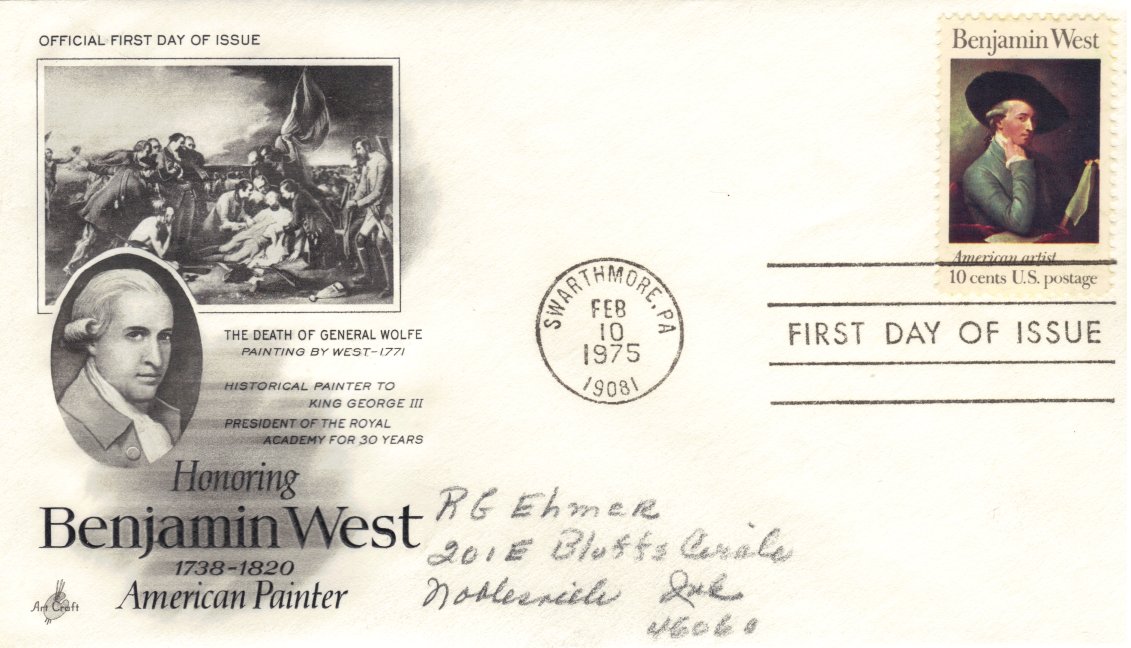 OFFICIAL FIRST DAY OF ISSUE
Benjamin West
American artist
10 cents U.S. postage
THE DEATH OF GENERAL WOLFE
PAINTING BY WEST-1771
HISTORICAL PAINTER TO
KING GEORGE III
PRESIDENT OF THE ROYAL
ACADEMY FOR 30 YEARS
Honoring
Benjamin West
1738-1820
American Painter
Art Craft
SWARTHMORE, PA
FEB
10
1975
19081
FIRST DAY OF ISSUE
RG Ehmer
201 E Bluffs Circle
Noblesville Ind
46060